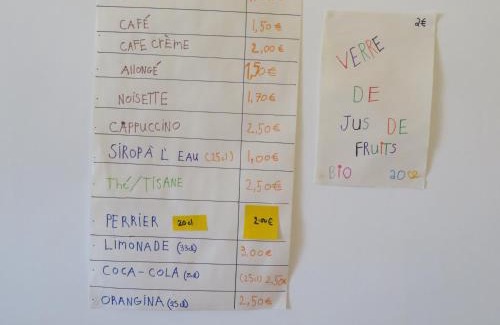 CAFÉ 1,50€
CAFE CRÈME 2,00€
Allongé 1,50€
NOISETTE 1,70€
CAPPUCCINO 2,50€
SIROP À L'EAU (25cl) 1,00€
Thé/TISANE 2,50€
PERRIER 20cl 2.00€
LIMONADE (33cl) 3,00€
COCA-COLA (25cl) 2,50€
ORANGINA (25cl) 2,50€
2€
VERRE
DE
JUS DE
FRUITS
BIO 20cl